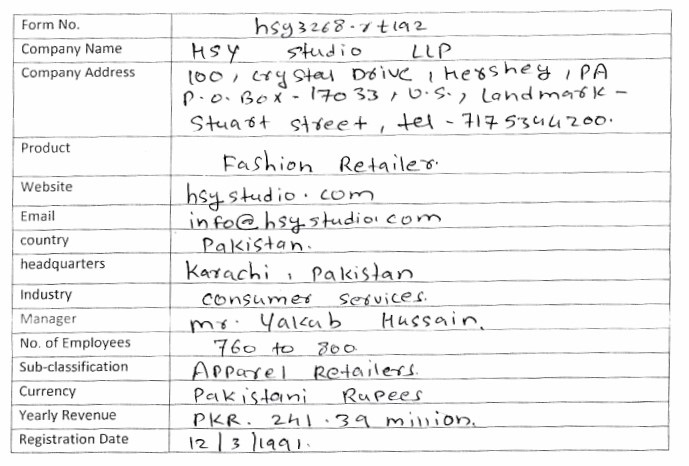 Form No. hsy3268.rt192
Company Name HSY Studio LLP
Company Address 100, Crystal Drive, Hershey, PA
P.O. Box - 17033, U.S., Landmark -
Stuart Street, tel - 7175344200.
Product Fashion Retailer.
Website hsystudio.com
Email info@hsystudio.com
country Pakistan.
headquarters Karachi, Pakistan
Industry Consumer Services.
Manager Mr. Yakub Hussain.
No. of Employees 760 to 800
Sub-classification Apparel Retailers.
Currency Pakistani Rupees
Yearly Revenue PKR. 241.39 million.
Registration Date 12/3/1991.